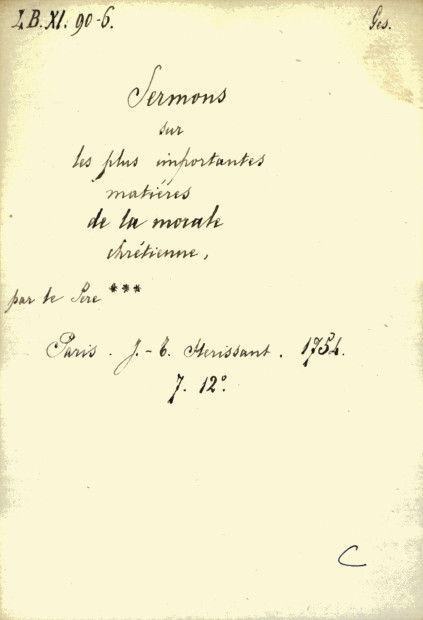 LB. XI. 90-6. Ges.
Sermons
sur
les plus importantes
matières
de la morale
chrétienne,
par le Père ***
Paris. J.-T. Herissant. 1754.
7. 12°.
C